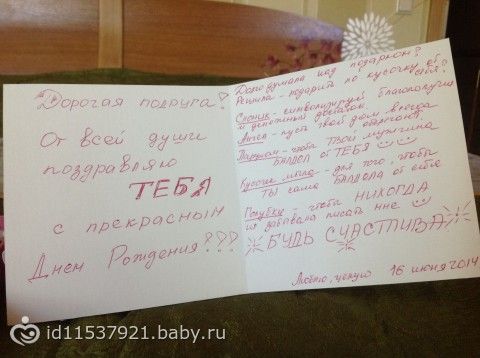 Дорогая подруга!
От всей души
поздравляю
ТЕБЯ
с прекрасным
Днем Рождения???
Долго думала над подарком?
Решила - подарить по кусочку от себя?
Слоник - символизирует благополучие
и денежный достаток.
Ангел - пусть твой дом всегда
оберегает.
чтобы ТВОЙ мужчина
балдел от ТЕБЯ
Кусочек мыла - для того, чтобы
ТЫ сама БАЛДЕЛА от себя
чтобы НИКОГДА
не забывала писать мне
БУДЬ СЧАСТЛИВА
Люблю, целую 16 июня 2014
id11537921.baby.ru